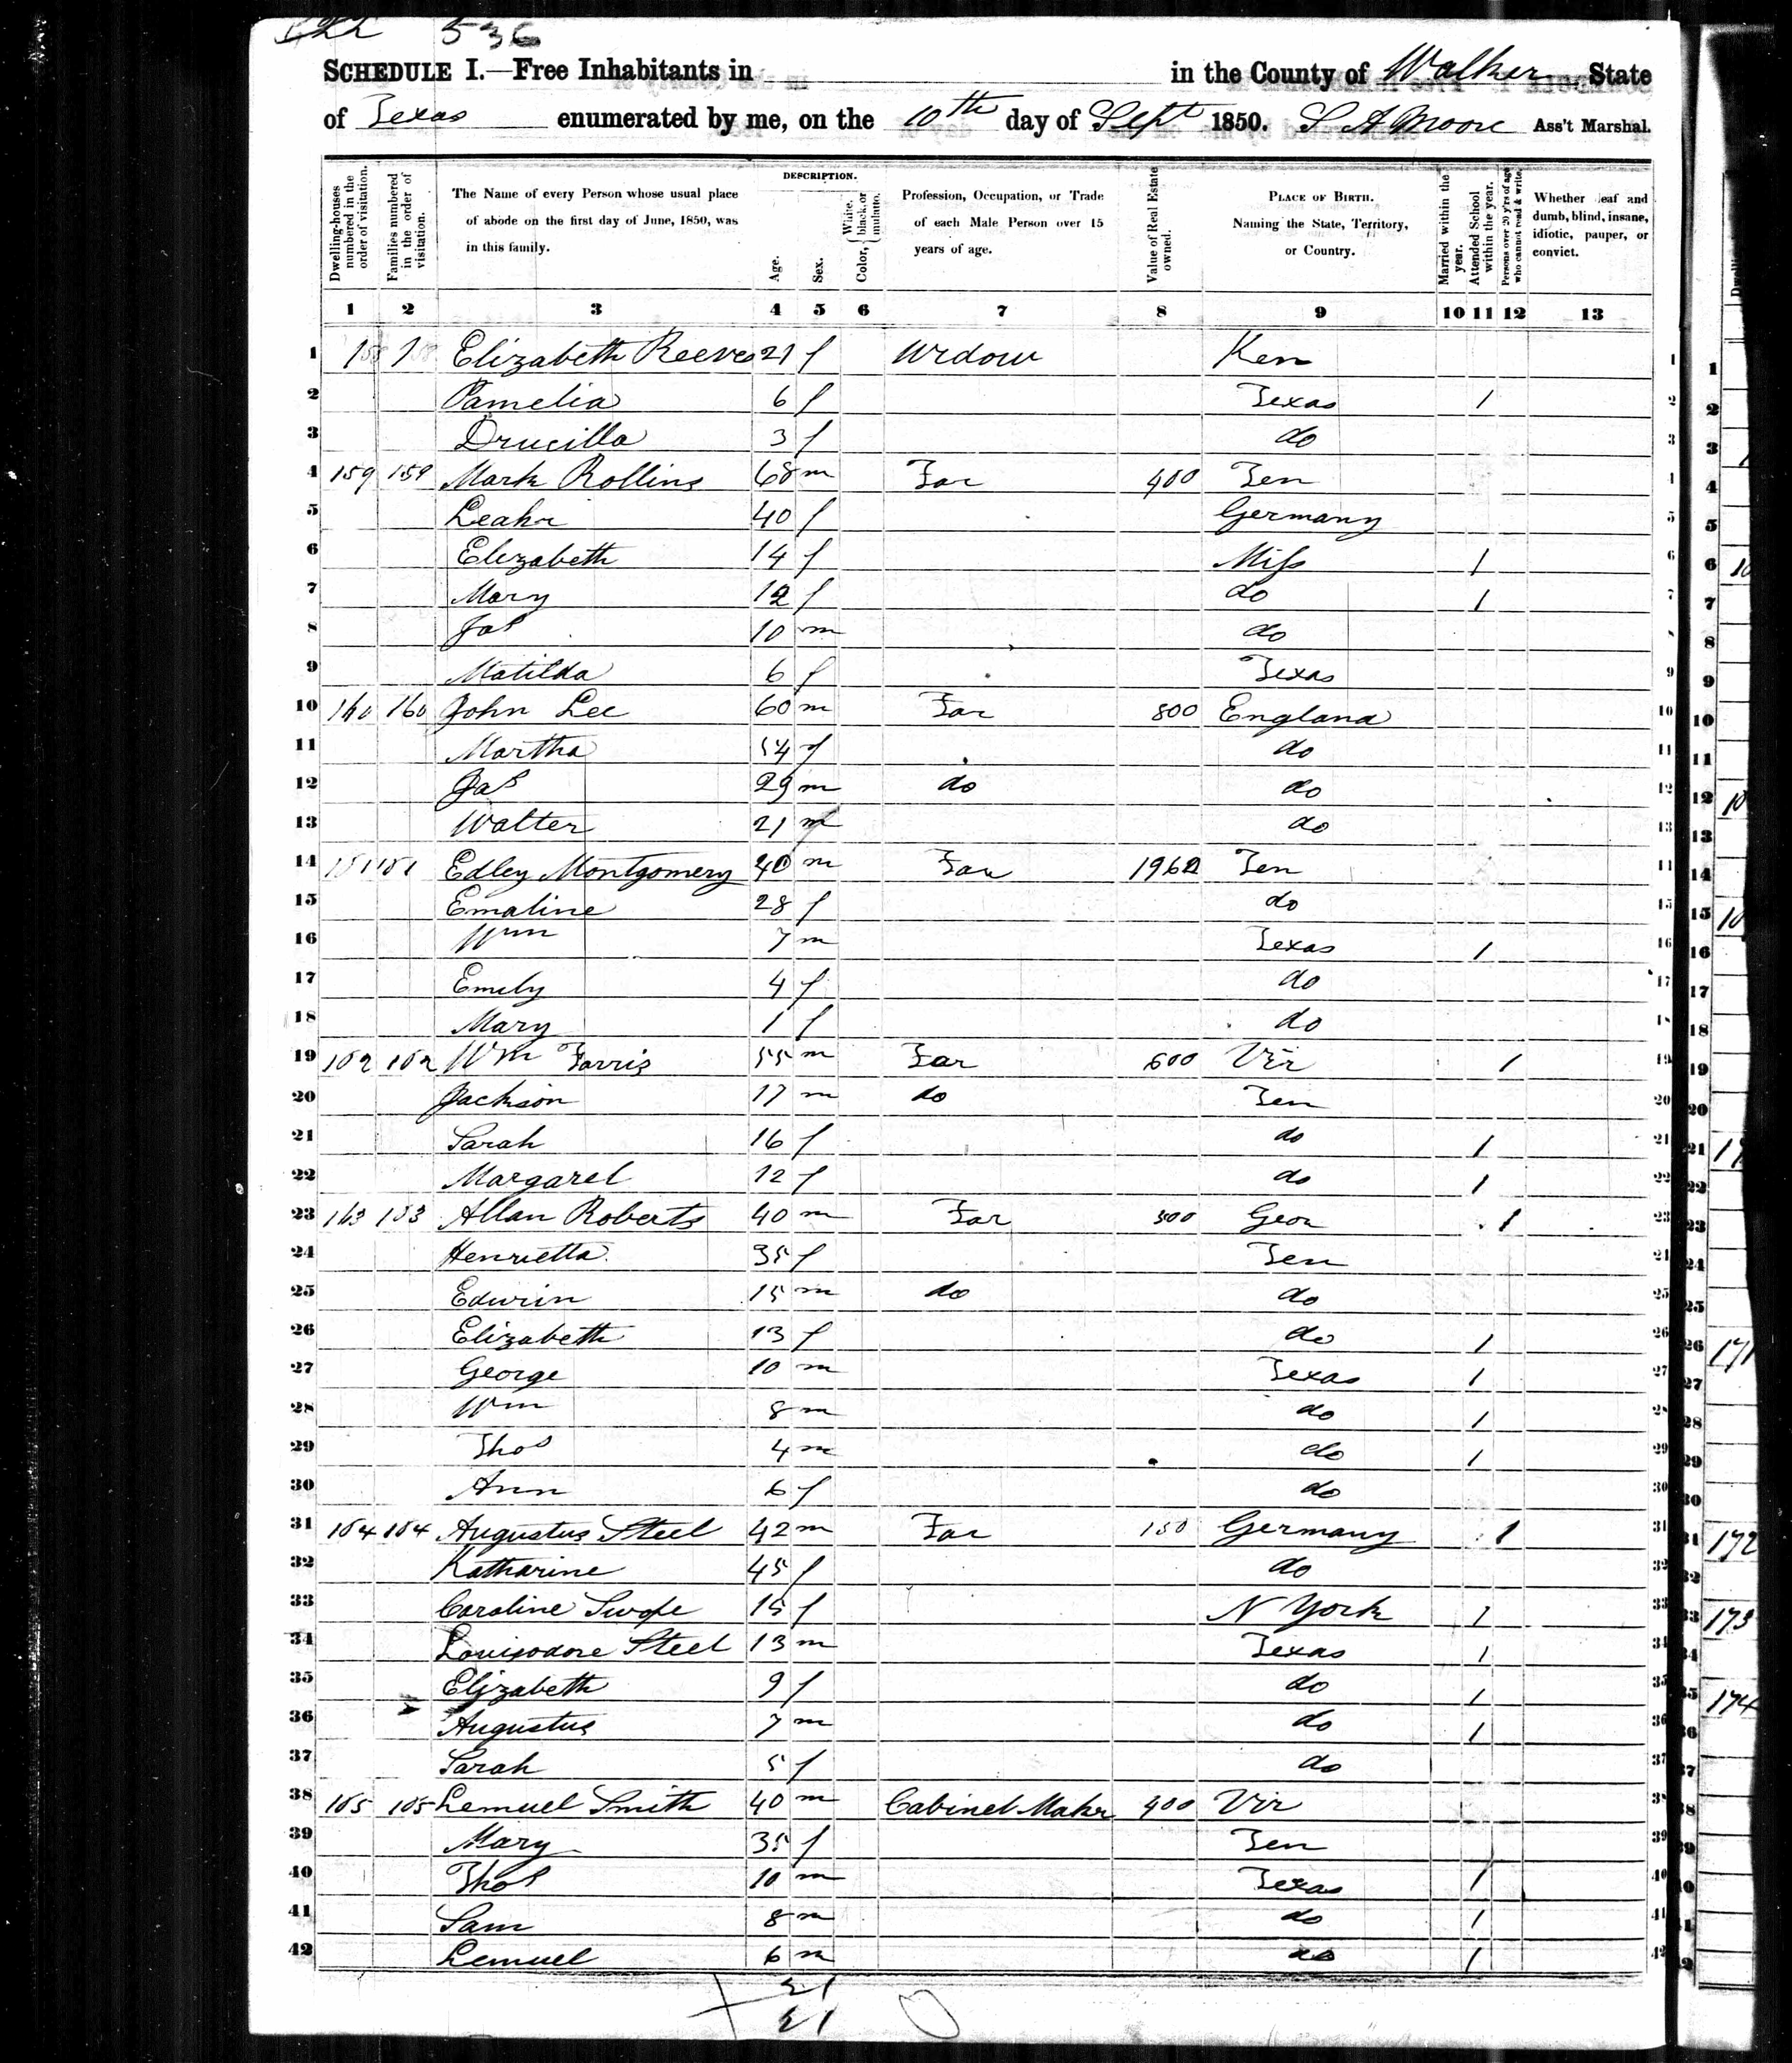 536
SCHEDULE I.—Free Inhabitants in in the County of Walker State
of Texas enumerated by me, on the 10th day of Sept 1850. S A Moore Ass't Marshal.
Dwelling-houses numbered in the order of visitation.
Families numbered in the order of visitation.
The Name of every Person whose usual place of abode on the first day of June, 1850, was in this family.
DESCRIPTION.
Age.
Sex.
Color, { White, black, or mulatto.
Profession, Occupation, or Trade of each Male Person over 15 years of age.
Value of Real Estate owned.
PLACE OF BIRTH. Naming the State, Territory, or Country.
Married within the year.
Attended School within the year.
Persons over 20 y'rs of age who cannot read & write.
Whether deaf and dumb, blind, insane, idiotic, pauper, or convict.
1 2 3 4 5 6 7 8 9 10 11 12 13
1 158 158 Elizabeth Reeves 21 f Widow Ken 1
2 Pamelia 6 f Texas 1 2
3 Drucilla 3 f do 3
4 159 159 Mark Rollins 68 m Far 400 Ten 4
5 Leahr 40 f Germany 5
6 Elizabeth 14 f Miss 1 6
7 Mary 12 f do 1 7
8 Jas 10 m do 8
9 Matilda 6 f Texas 9
10 160 160 John Lee 60 m Far 800 England 10
11 Martha 54 f do 11
12 Jas 29 m do do 12
13 Walter 21 m do 13
14 161 161 Edley Montgomery 40 m Far 1962 Ten 14
15 Emaline 28 f do 15
16 Wm 7 m Texas 1 16
17 Emily 4 f do 17
18 Mary 1 f do 18
19 162 162 Wm Farris 55 m Far 600 Vir 1 19
20 Jackson 17 m do Ten 20
21 Sarah 16 f do 1 21
22 Margaret 12 f do 1 22
23 163 163 Allan Roberts 40 m Far 500 Geor 1 23
24 Henrietta 35 f Ten 24
25 Edwin 15 m do do 25
26 Elizabeth 13 f do 1 26
27 George 10 m Texas 1 27
28 Wm 8 m do 1 28
29 Thos 4 m do 1 29
30 Ann 6 f do 30
31 164 164 Augustus Steel 42 m Far 150 Germany 1 31
32 Katharine 45 f do 32
33 Caroline Swope 15 f N York 1 33
34 Steel 13 m Texas 1 34
35 Elizabeth 9 f do 1 35
36 Augustus 7 m do 1 36
37 Sarah 5 f do 37
38 165 165 Lemuel Smith 40 m Cabinet Makr 400 Vir 38
39 Mary 35 f Ten 39
40 Thos 10 m Texas 1 40
41 Sam 8 m do 1 41
42 Lemuel 6 m do 1 42